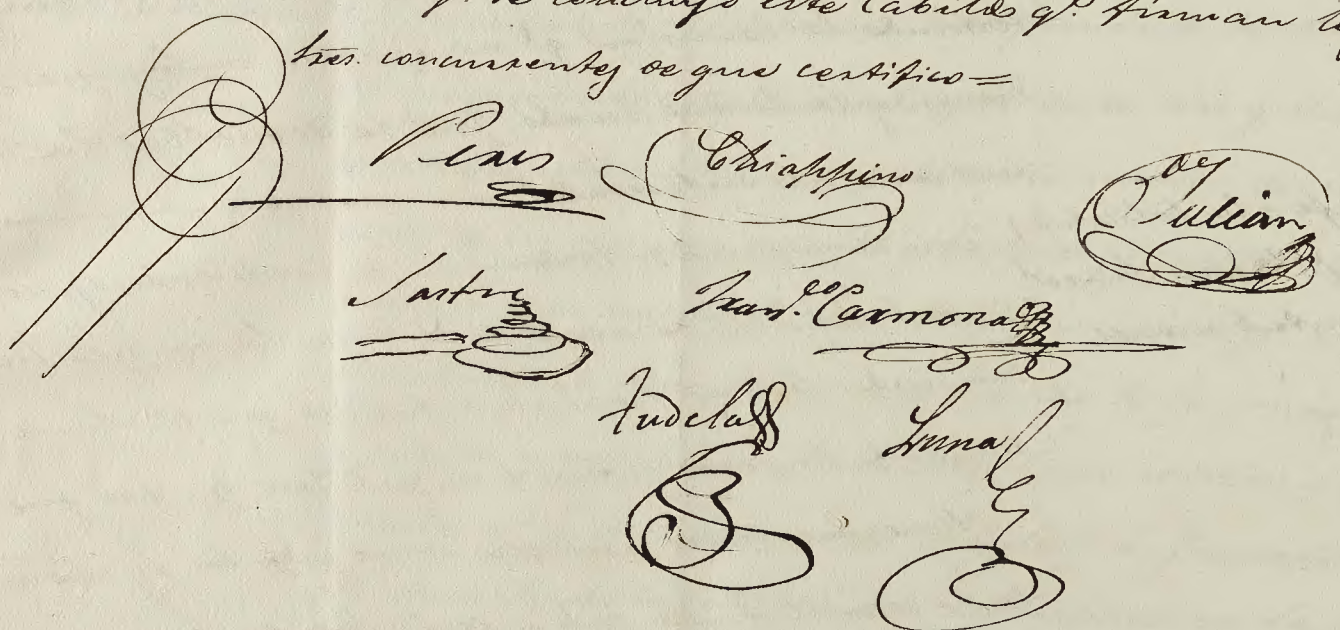 se concluyó este Cabildo q.e firman
sres. concurrentes de que certifico =
Chiappino
de Julian
Sastre
Fran.co Carmona
Tudela
Luna